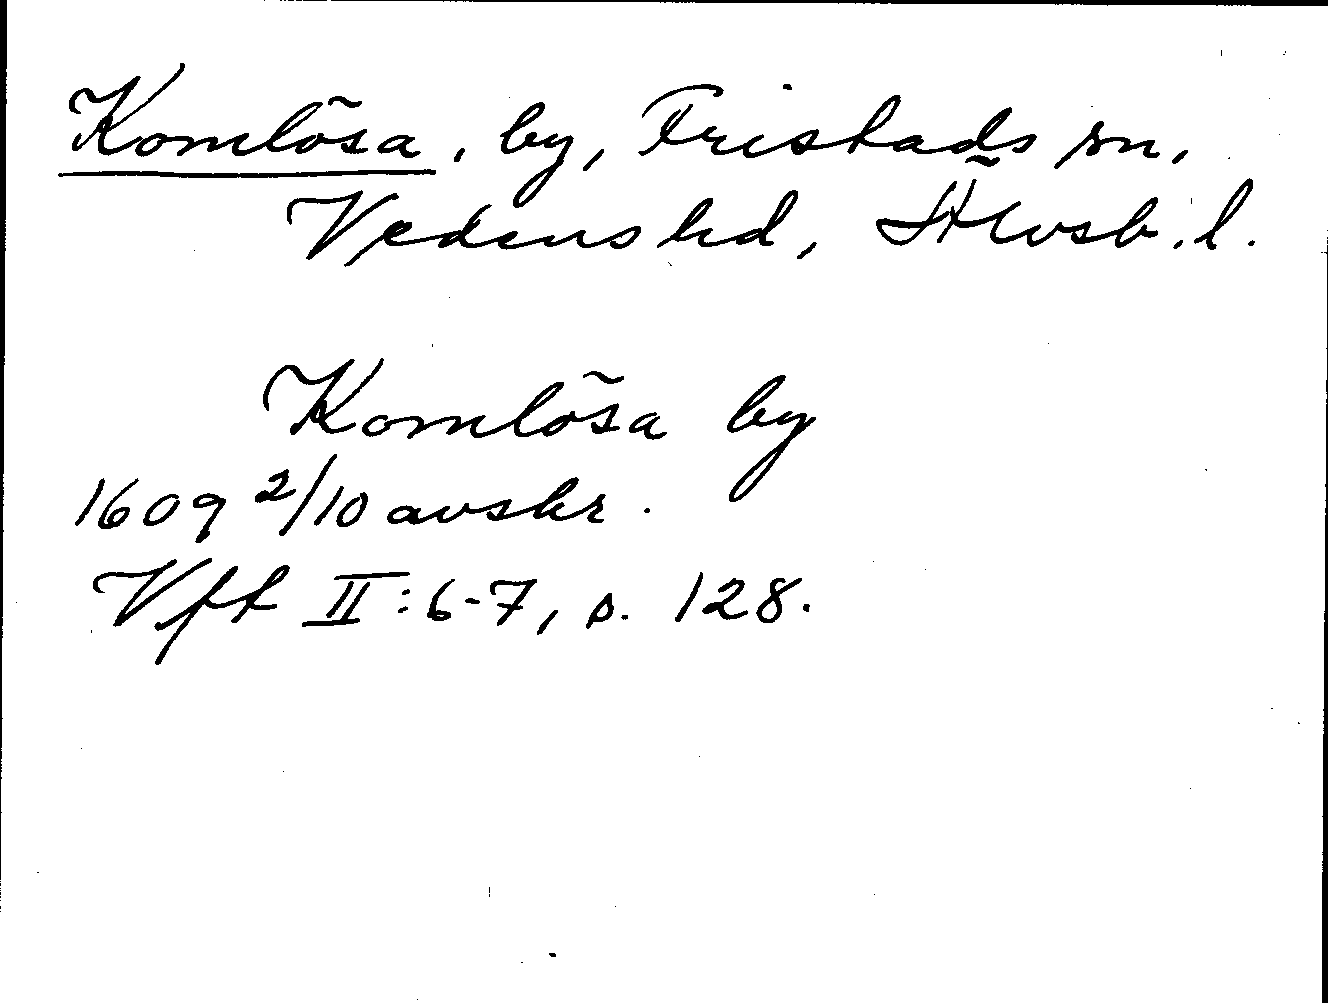 Komlösa, by, Fristads sn,
Vedens hd, Älvsb. l.
Komlösa by
1609 2/10 avskr.
Vft II:6-7, s. 128.